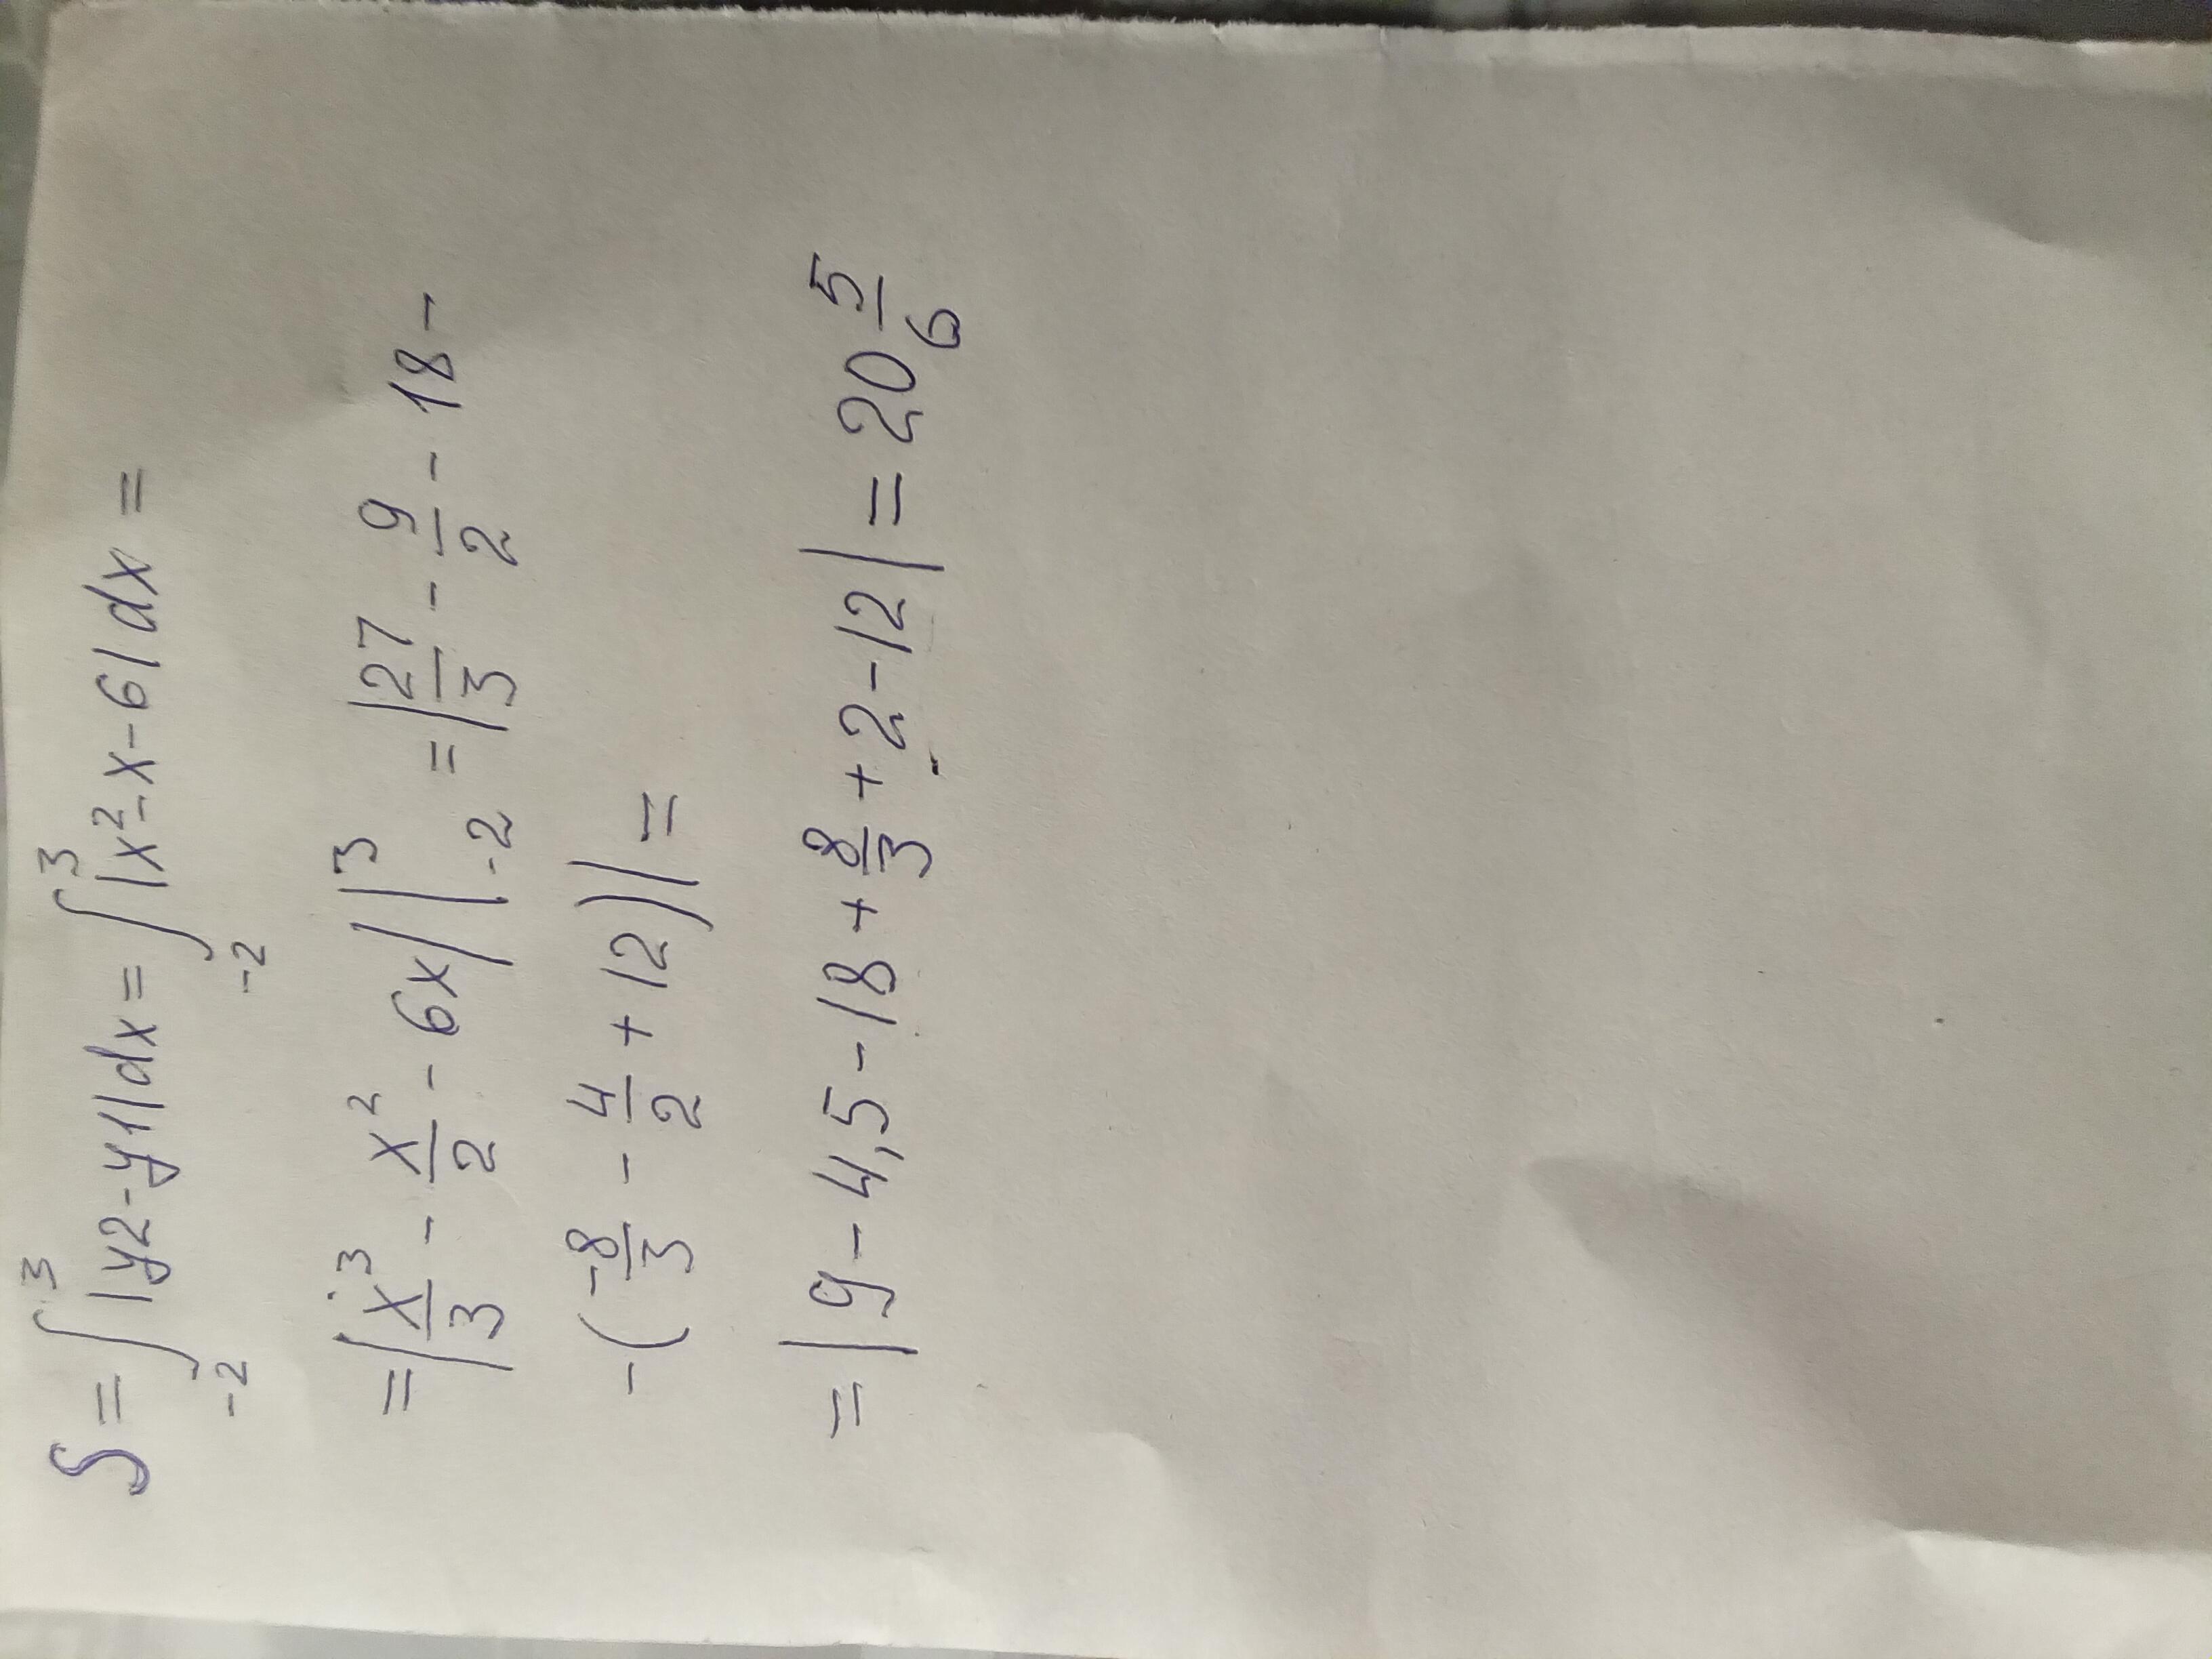 S = ∫₋₂³ |y2 - y1| dx = ∫₋₂³ |x² - x - 6| dx =
= |x³/3 - x²/2 - 6x| |₋₂³ = |27/3 - 9/2 - 18 -
- (-8/3 - 4/2 + 12)| =
= |9 - 4,5 - 18 + 8/3 + 2 - 12| = 20 5/6